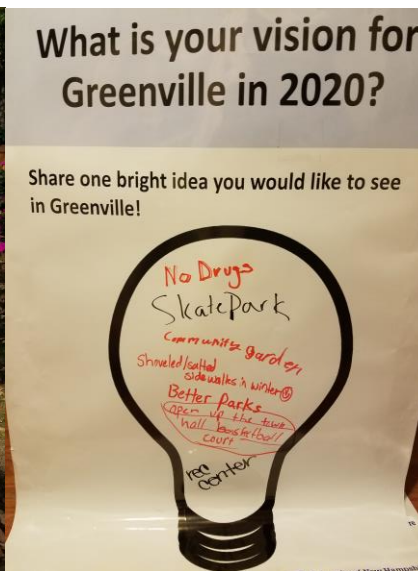 What is your vision for
Greenville in 2020?
Share one bright idea you would like to see
in Greenville!
No Drugs
SkatePark
Community garden
Shoveled/salted
sidewalks in winter
Better Parks
open up the town
hall basketball
court
rec
center
New Hampshire